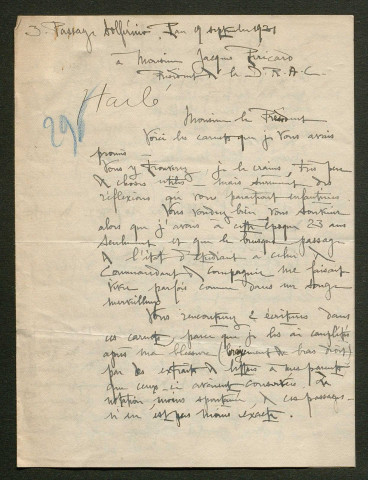 3. Passage Solférino Pau 9 septembre 1931
à Monsieur Jacques Péricard
Président de la D.R.A.C.
Harlé
296
Monsieur le Président
Voici les carnets que je vous avais
promis.
Vous y trouverez, je le crains, très peu
de choses utiles — mais sûrement des
réflexions qui vous paraitront enfantines
Vous voudrez bien vous souvenir
alors que j'avais à cette époque 23 ans
seulement et que le brusque passage
de l'état d'étudiant à celui de
Commandant de Compagnie me faisait
vivre parfois comme dans un songe
merveilleux
Vous rencontrerez 2 écritures dans
ces carnets parce que je les ai complétés
après ma blessure (broyement du bras droit)
par des extraits de lettres à mes parents
que ceux-ci avaient conservées. La
notation moins spontanée de ces passages
n'en est pas moins exacte.